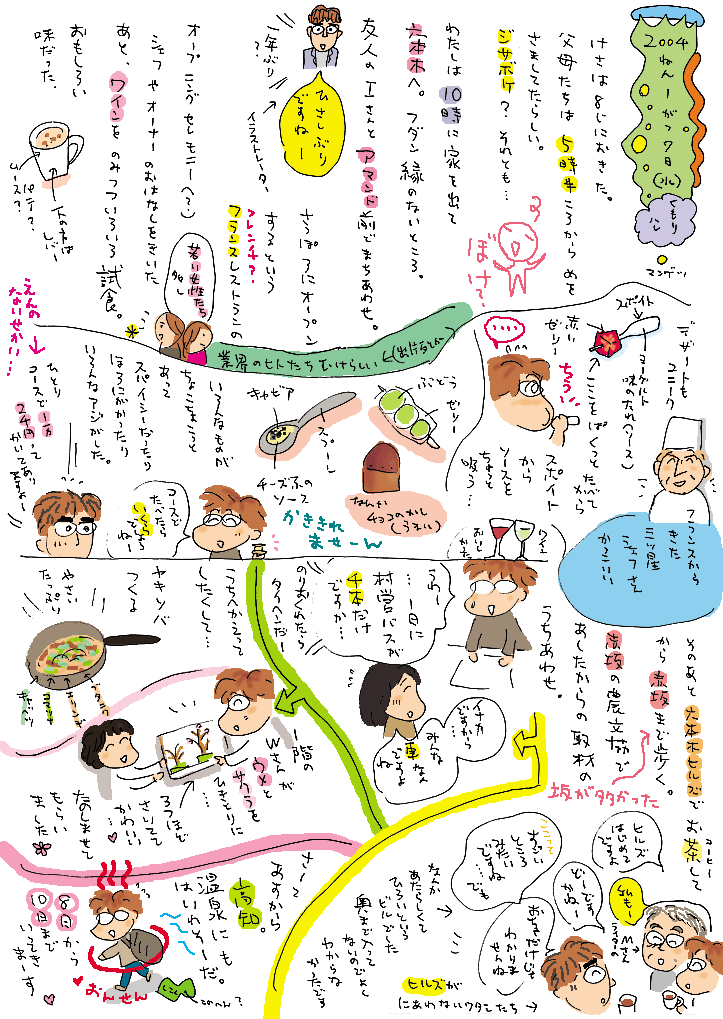 2004
ねんーがつ7日(水)
くもり
ハレ
マンゲツ
けさは8じにおきた。
父母たちは5時半ころからめを
さましてたらしい。
ジサボケ?それとも…
ぼけ?
わたしは10時に家を出て
六本木へ。フダン縁のないところ。
友人のエさんとアマンド前でまちあわせ。
一年ぶり
?…
ひさしぶり
ですねー
イラストレーター
さっぽろにオープン
するという
フレンチ?
フランスレストランの
オープニングセレモニーへ?)
シェフやオーナーのおはなしをきいた
あと、ワインをのみつついろいろ
試食。
若い女性たち
多し
おもしろい
味だった、
下のネは
レバー
パテ?
ムース?
業界のせんたちむけらしい
←(出版とか)
デザートも
ユニーク
スポイト
ヨーグルト
味のたれ(ソース)
ここをぱくっと
たべてから
赤い
ゼリー
ちうぅ
スポイト
から
ソースを
ちゅっと
吸う…
フランスから
きた
三ツ星
シェフさん
かっこいい
ぶどう
ゼリー
キャビア
スプーン
チーズふの
ソース
なんか
チョコのかし
(うまい)
かききれ
ませーん
いろんなものが
ちょこちょこと
あって
スパイシーだったり
ほろにがかったり
いろんなアジがした。
えんの
ないせかい…
ひとり
コースで1万
2千円って
かいてありますよー
コースで
たべたら
いくら
でしょうねー
ワイン
おいしかった
そのあと六本木ヒルズでお茶して
コーヒー
から赤坂まで歩く。
坂が多かった
赤坂の農文協で
あしたからの取材の
うちあわせ。
うわー
…一日に
村営バスが
千本だけ
ですか…
イナカ
ですから
みんな
車なん
ですよ
ね
のりおくれたら
タイヘンだー
うちへかえって
したくして…
ヤキソバ
つくる
やさい
たっぷり
キャベツ
一階の
Wさんが
ウメと
サクラを
ひきとりに
ろつほど
さいてて
かわいい
たのしませて
もらい
ました
さーて
あすから
高知。
温泉にも
はいれそーだ。
8日から
10日まで
いってき
まーす
おんせん
しこく
ヒルズ
はじめて
ですよ
私もー
Mさん
どーです
かねー
おちゃだけじゃ
わかりま
せんね
ここって
すごい
ところ
みたい
ですね
…でも
なんか
あたらしくて
ひろいという
ビルでした
奥まで入って
ないのでよく
わからな
かったです
ヒルズが
にあわないワタシたち→